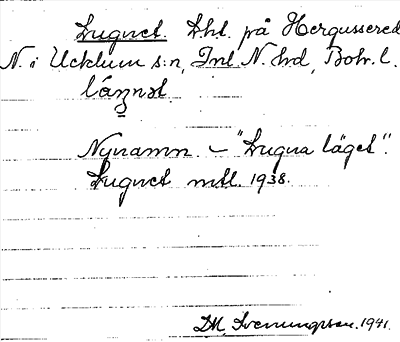 Lugnet. Lht. på Hergussered
N. i Ucklum s:n, Inl. N. hd, Boh. l.
Nynamn – "Lugna läget".
Lugnet mtl. 1938.
Svenungsson. 1941.